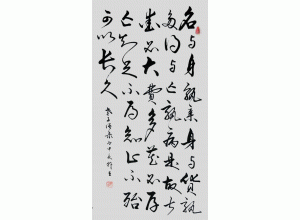 名与身孰亲身与货孰
多得与亡孰病是故甚
爱必大费多藏必厚
亡知足不辱知止不殆
可以长久